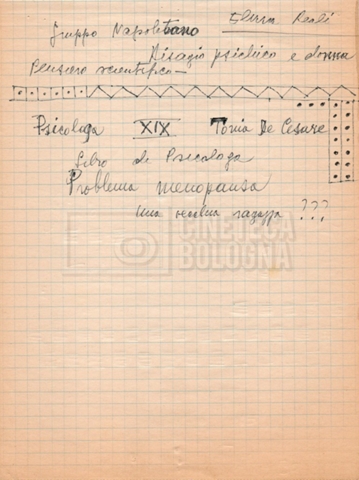 Gruppo Napolitano Elvira Reali
Disagio psichico e donna
Pensiero scientifico —
Psicologa XIX Tonia De Cesare
Libro di Psicologa
Problema menopausa
Una vecchia ragazza ???
CINETECA
BOLOGNA